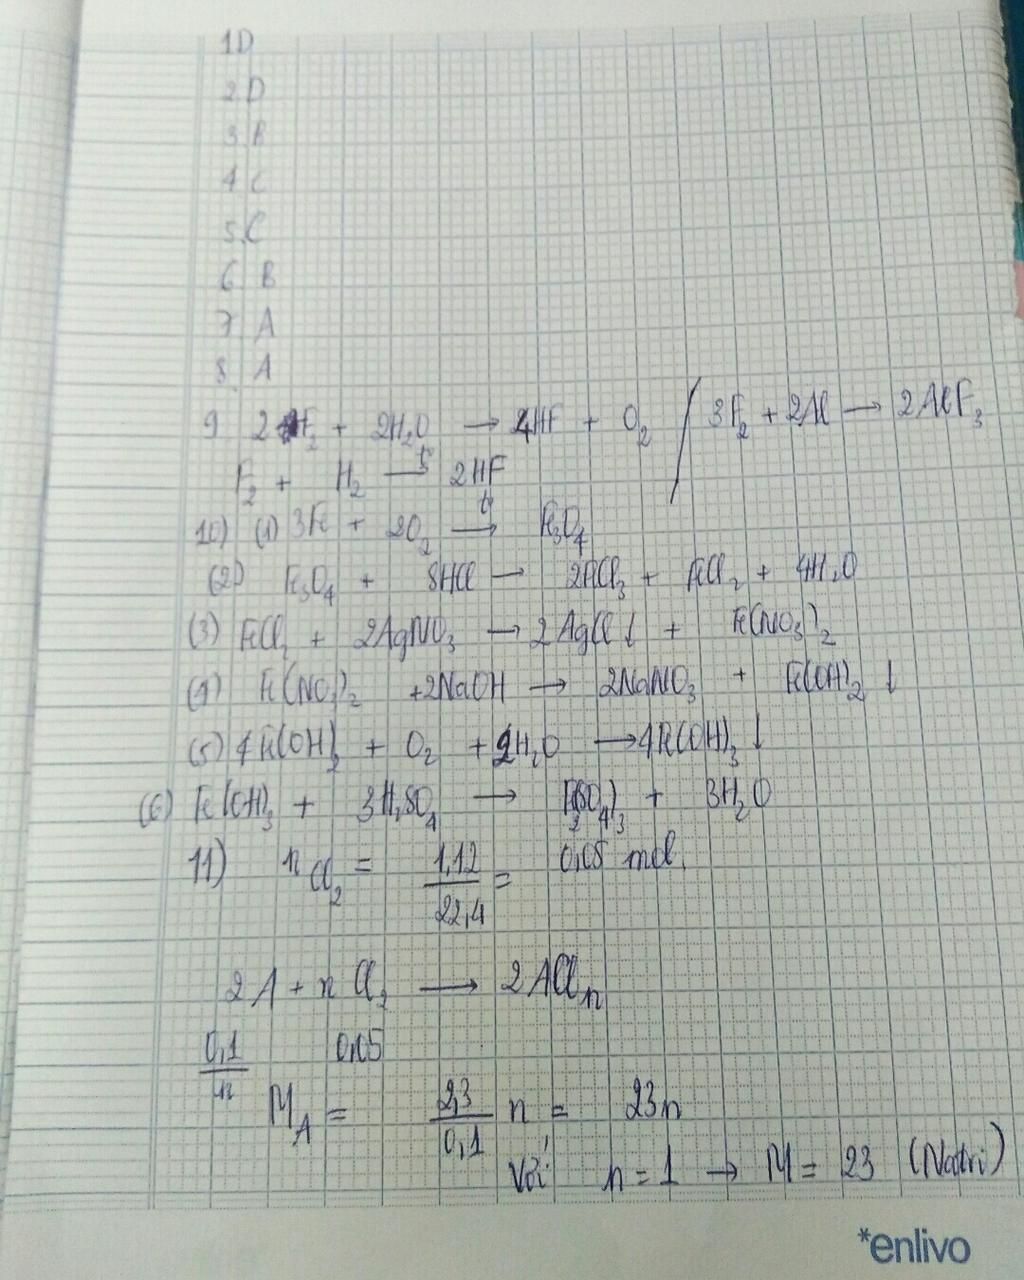 1D
2 D
3. B
4 C
5. C
6 B
7 A
8. A
9 2F₂ + 2H₂O → 4HF + O₂ / 3F₂ + 2Al → 2AlF₃
F₂ + H₂ →(t°) 2HF
10) (1) 3Fe + 2O₂ →(t°) Fe₃O₄
(2) Fe₃O₄ + 8HCl → 2FeCl₃ + FeCl₂ + 4H₂O
(3) FeCl₂ + 2AgNO₃ → 2AgCl↓ + Fe(NO₃)₂
(4) Fe(NO₃)₂ +2NaOH → 2NaNO₃ + Fe(OH)₂ ↓
(5) 4Fe(OH)₂ + O₂ + 2H₂O → 4Fe(OH)₃ ↓
(6) Fe(OH)₃ + 3H₂SO₄ → Fe₂(SO₄)₃ + 3H₂O
11) n Cl₂ = 1,12/22,4 = 0,05 mol.
2A + n Cl₂ → 2AClₙ
0,1/n 0,05
M_A = 2,3/0,1 n = 23n
Với n = 1 → M = 23 (Natri)
*enlivo